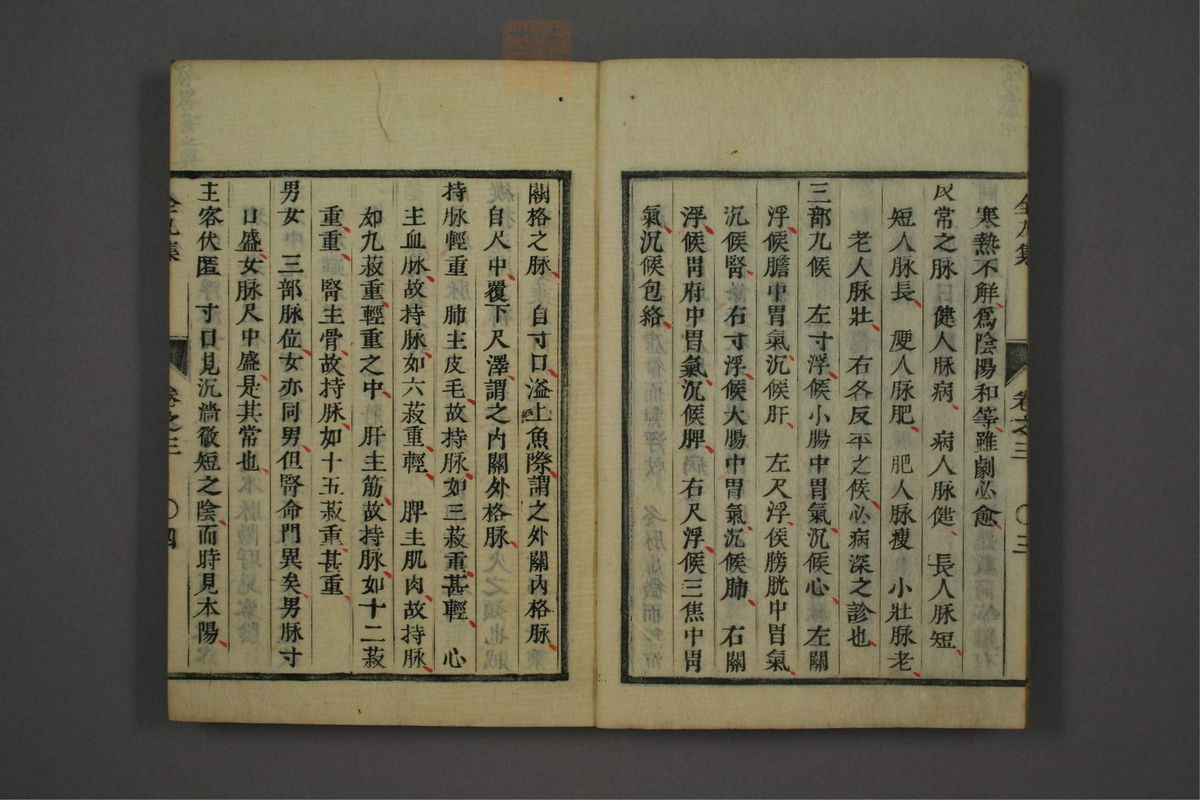 寒熱不觧爲陰陽和等雖劇必愈
反常之脉曰健人脉病 病人脉健 長人脉短
短人脉長 瘦人脉肥 肥人脉瘦 小壯脉老
老人脉壯 右各反平之候必病深之診也
三部九候 左寸浮候小腸中胃氣沉候心 左關
浮候膽中胃氣沉候肝 左尺浮候膀胱中胃氣
沉候腎 右寸浮候大腸中胃氣沉候肺 右關
浮候胃府中胃氣沉候脾 右尺浮候三焦中胃
氣沉候包絡
全九集 卷之三 〇三
關格之脉 自寸口溢上魚際謂之外關內格脉
自尺中覆下尺澤謂之內關外格脉
持脉輕重 肺主皮毛故持脉如三菽重甚輕 心
主血脉故持脉如六菽重輕 脾主肌肉故持脉
如九菽重輕重之中 肝主筋故持脉如十二菽
重重 腎主骨故持脉如十五菽重甚重
男女 三部脉位女亦同男但腎命門異矣男脉寸
口盛女脉尺中盛是其常也
主客伏匿 寸口見沉濇微短之陰而時見本陽
全九集 卷之三 〇四